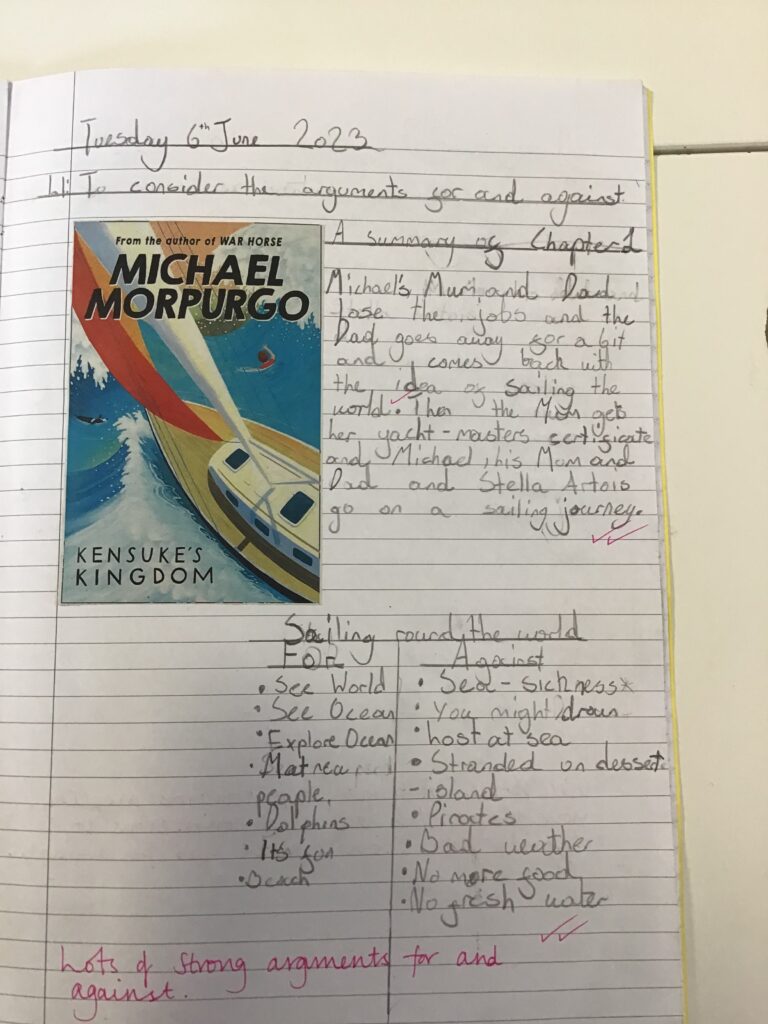 Tuesday 6th June 2023
L.I: To consider the arguments for and against
From the author of WAR HORSE
MICHAEL
MORPURGO
KENSUKE'S
KINGDOM
A summary of Chapter 1
Michael's Mum and Dad
lose the jobs and the
Dad goes away for a bit
and comes back with
the idea of sailing the
world. Then the Mum gets
her yacht-masters certificate
and Michael, his Mum and
Dad and Stella Artois
go on a sailing journey.
Sailing round the world
FOR
• See World
• See Ocean
• Explore Ocean
• Mat new
people.
• Dolphins
• It's fun
• Beach
Against
• Sea-sickness*
• You might drown
• Lost at sea
• Stranded on dessert
-island
• Pirates
• Bad weather
• No more food
• No fresh water
Lots of strong arguments for and
against.